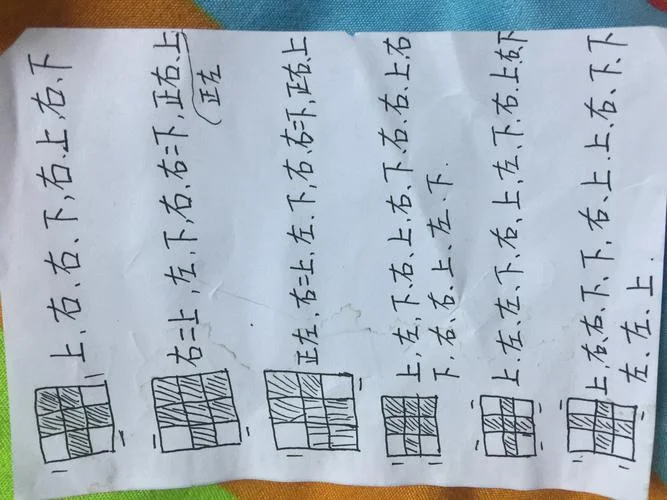 上、右、右、下、右、上、右、下
右二上,左,下,右、右二下,正右、上
(正左
正左,右二上,左、下,右、右二下,正右、上
上,左,下、右、上、右、下、右、右、上、右
下、右、右、上、左、下.
上、左、左、下、右、上,左、下、右、上、右、下
上,右、右、下、下,右、上、上、右、下、下
左、左、上.